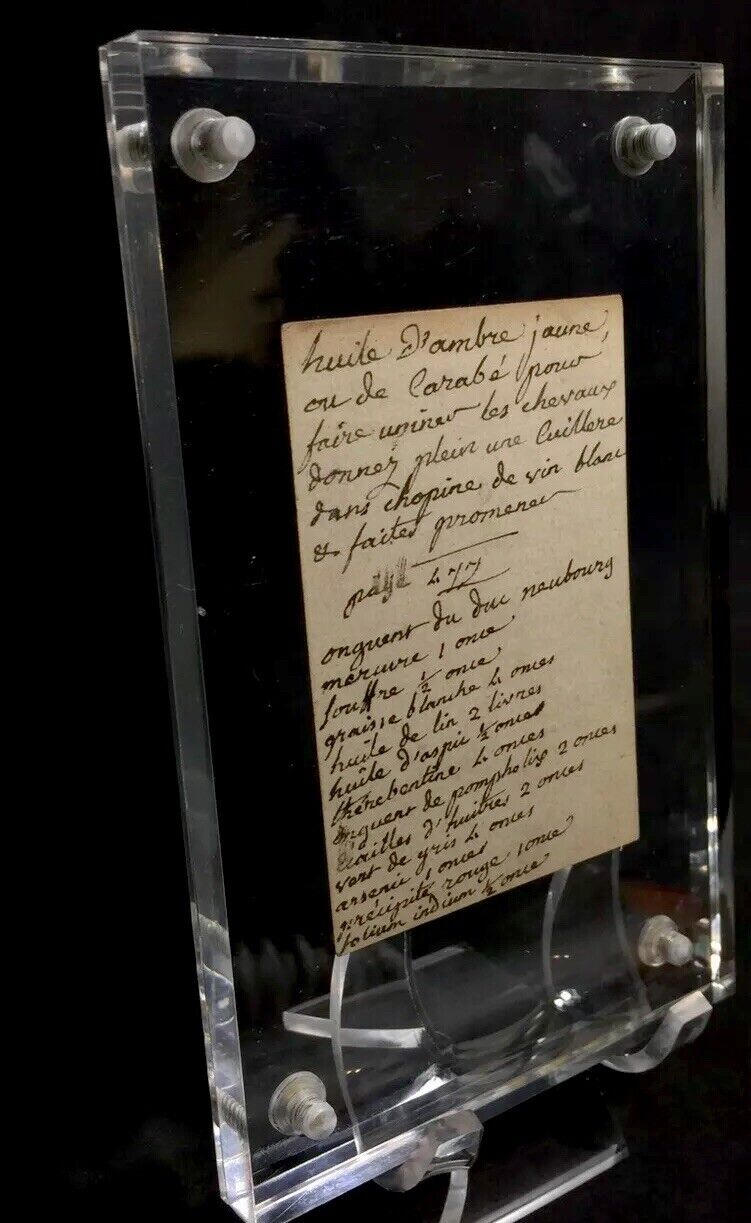 huile D'ambre jaune,
ou de Carabé pour
faire uriner les chevaux
donnez plein une Cuillere
dans chopine de vin blanc
& faites promener
page 477
onguent du duc neubourg
mercure 1 once
souffre ½ once
graisse blanche 4 onces
huile de lin 2 livres
huile d'aspic ½ onces
therebentine 4 onces
onguent de pompholix 2 onces
écailles d'huitres 2 onces
vert de gris 4 onces
arsenic 1 onces
précipité rouge 1 once
folium indium ½ once